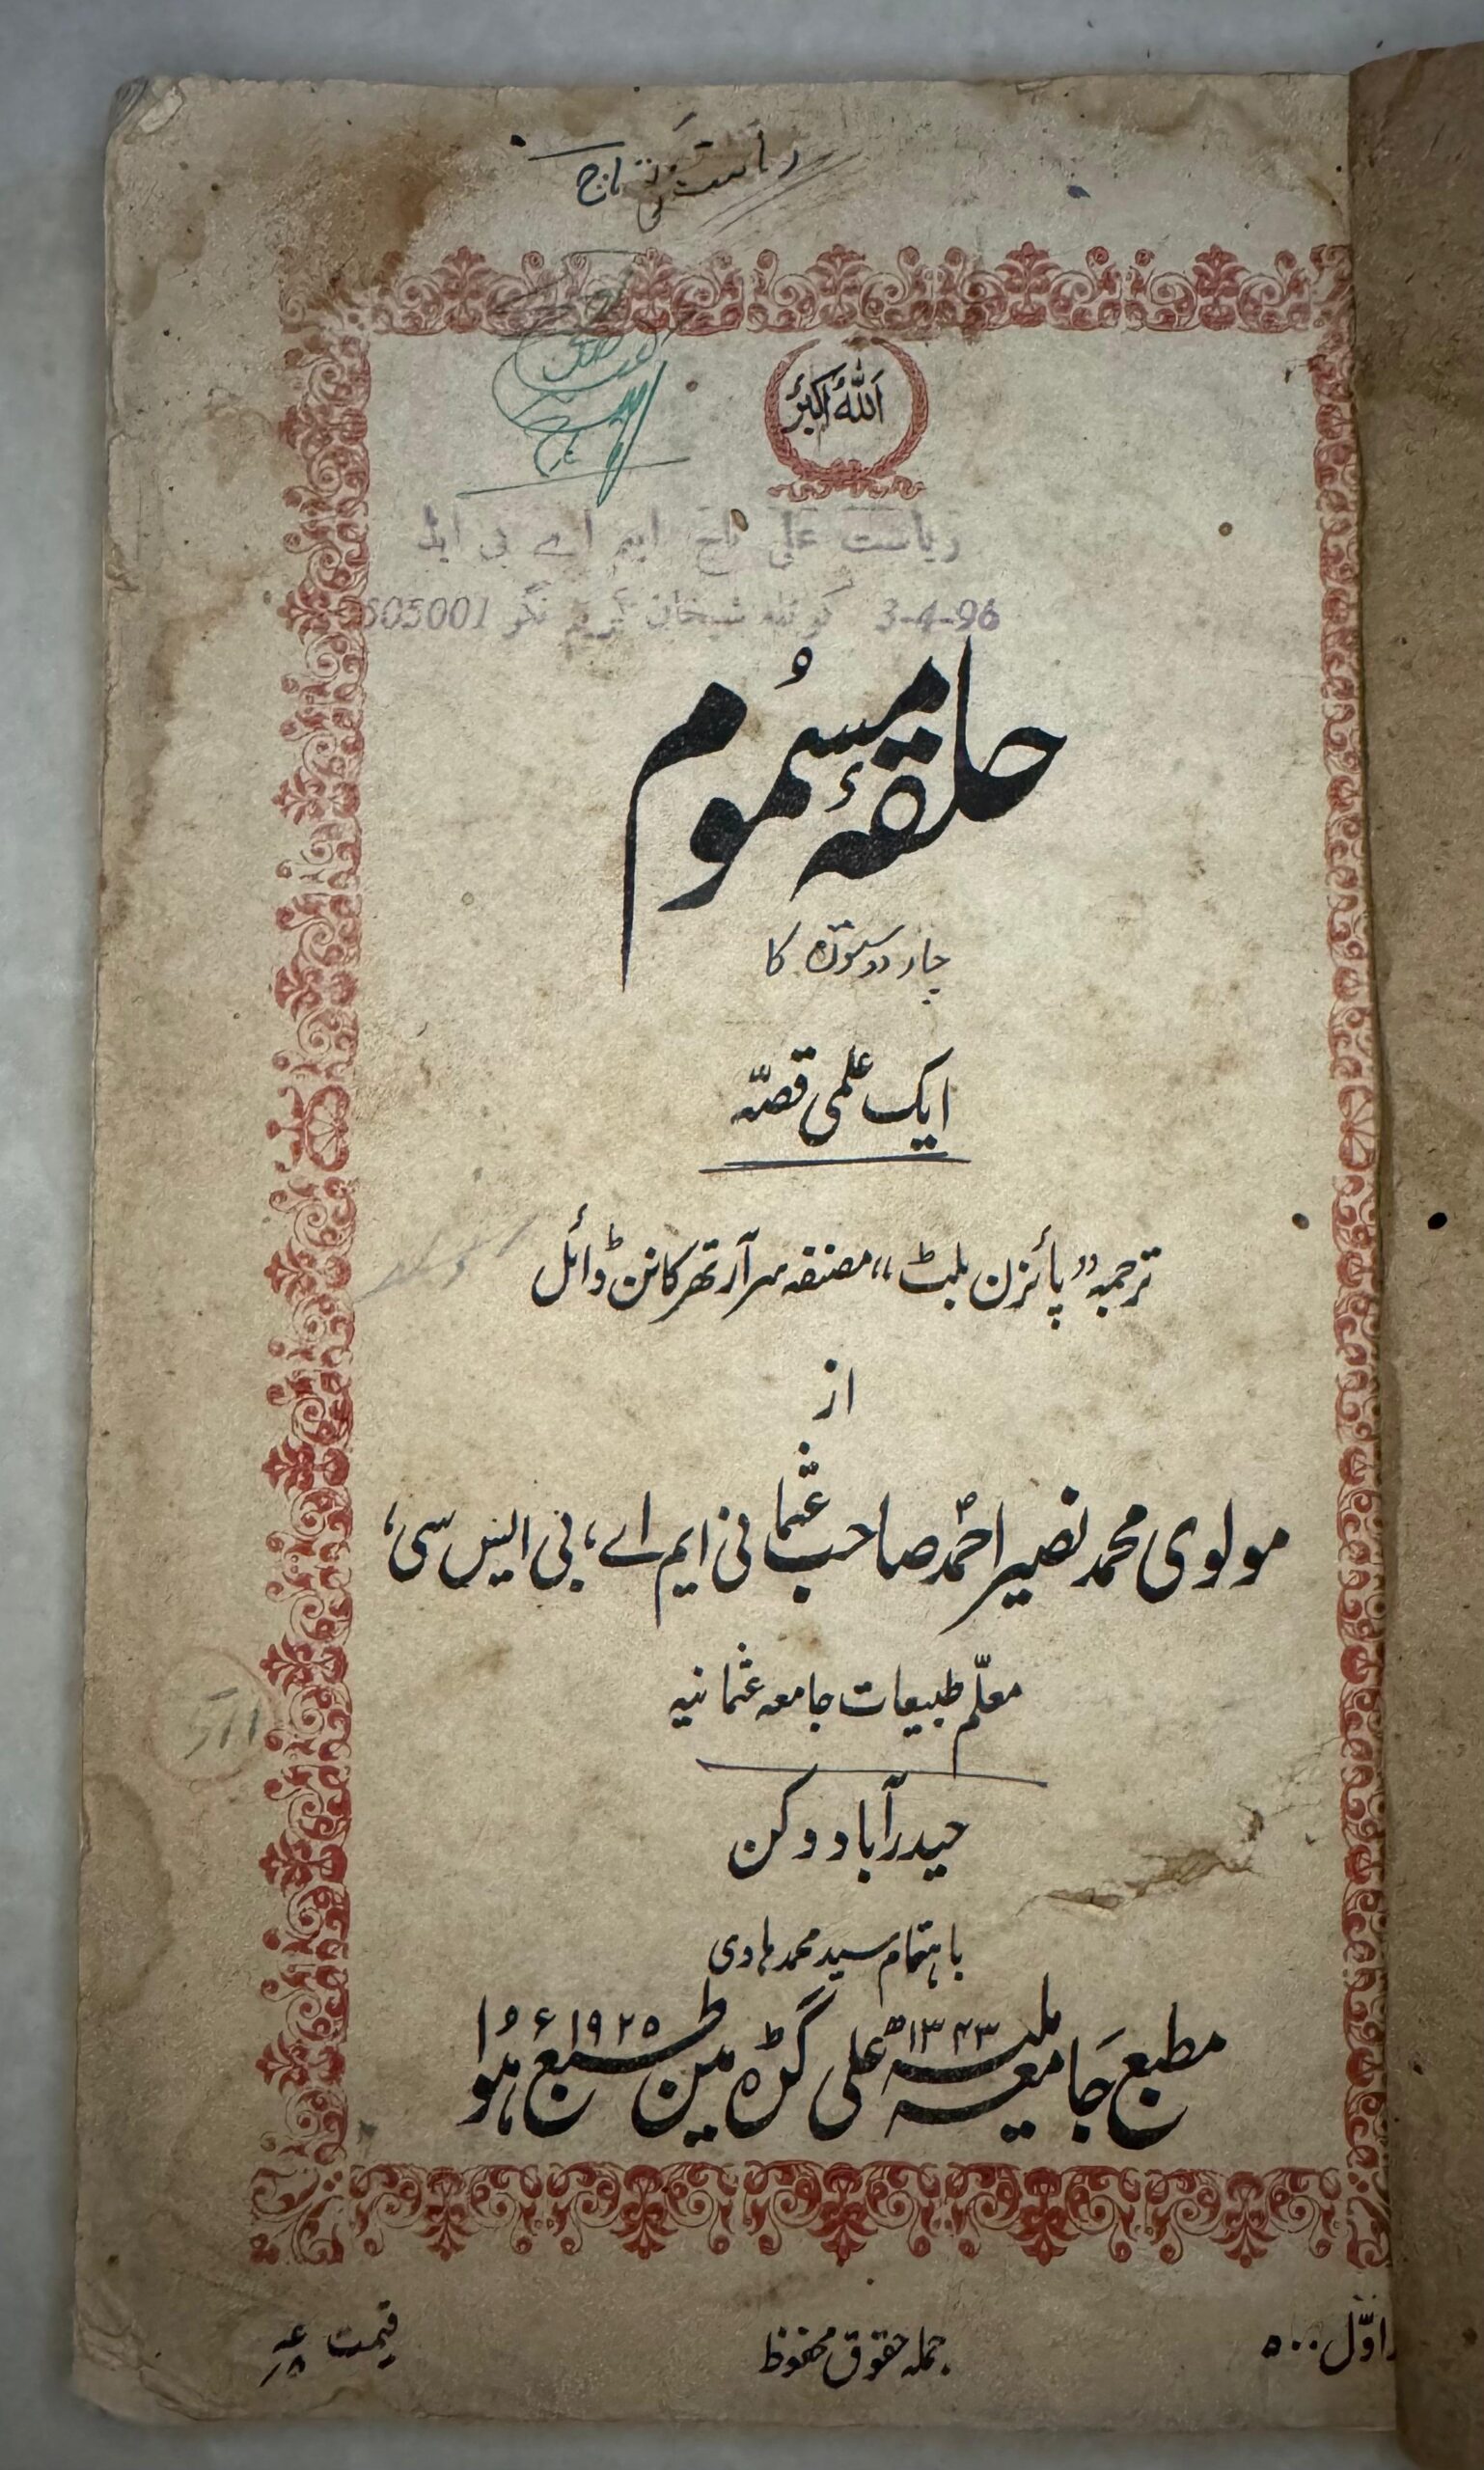 ریاست علی تاج
اللہ اکبر
ریاست علی تاج ایم اے بی ایڈ
3-4-96 کوٹلہ شیخان کریم نگر 505001
حلقۂ مسموم
چار دوستوں کا
ایک علمی قصّہ
ترجمہ "پائزن بلٹ" مصنفہ سر آرتھر کانن ڈائل
از
مولوی محمد نصیر احمد صاحب عثمانی ایم اے، بی ایس سی،
معلّم طبیعات جامعہ عثمانیہ
حیدرآباد دکن
باہتمام سید محمد ہادی
مطبع جامعہ ملیہ علی گڑہ مین طبع ہوا ۱۳۴۳ھ ۱۹۲۵ء
اوّل ۵۰۰
جملہ حقوق محفوظ
قیمت